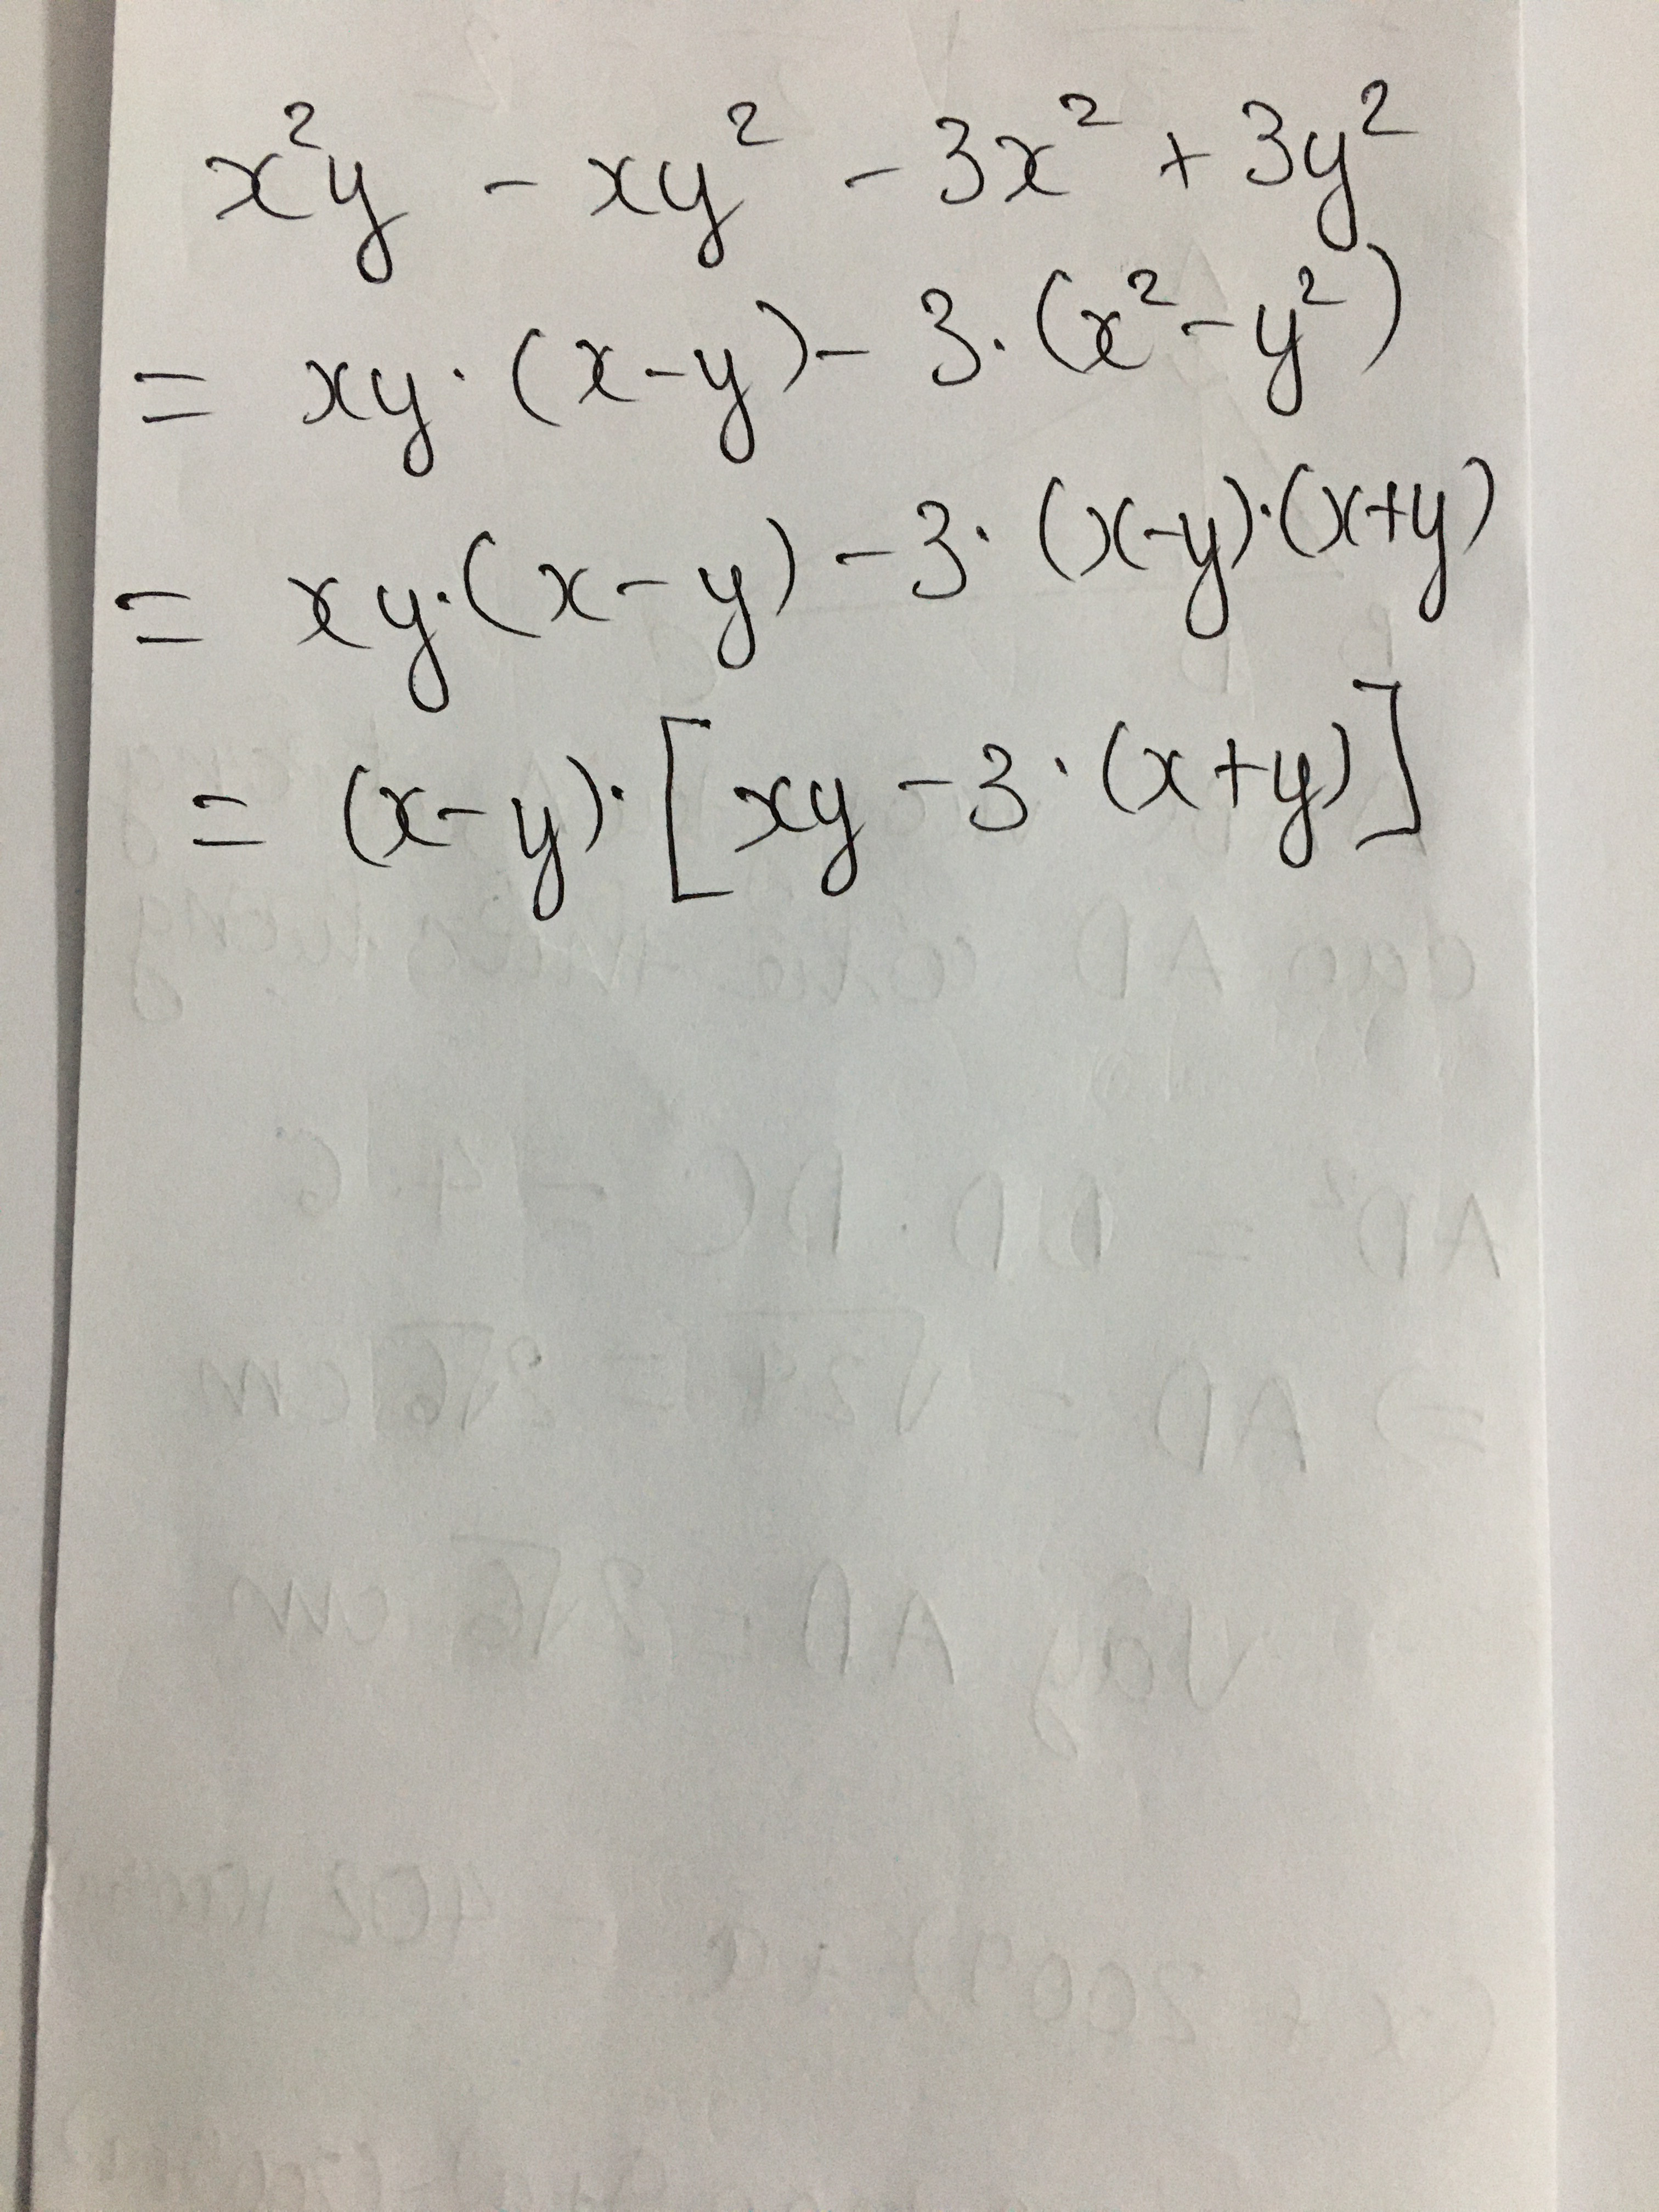 x²y - xy² - 3x² + 3y²
= xy·(x-y) - 3·(x²-y²)
= xy·(x-y) - 3·(x-y)·(x+y)
= (x-y)·[xy - 3·(x+y)]